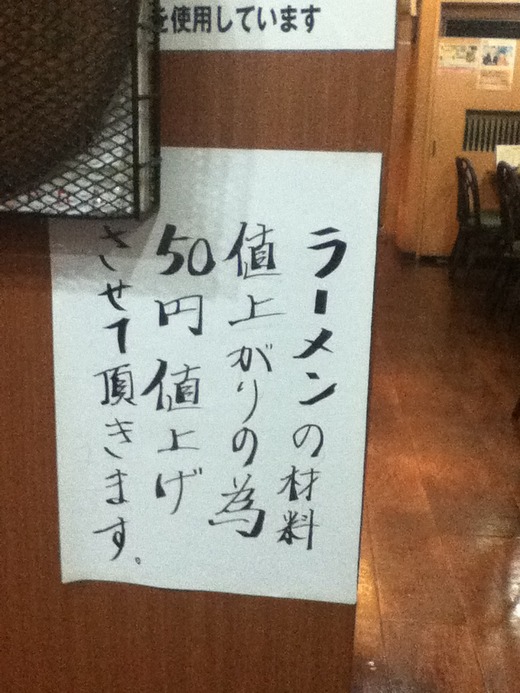 を使用しています
ラーメンの材料
値上がりの為
50円値上げ
させて頂きます。